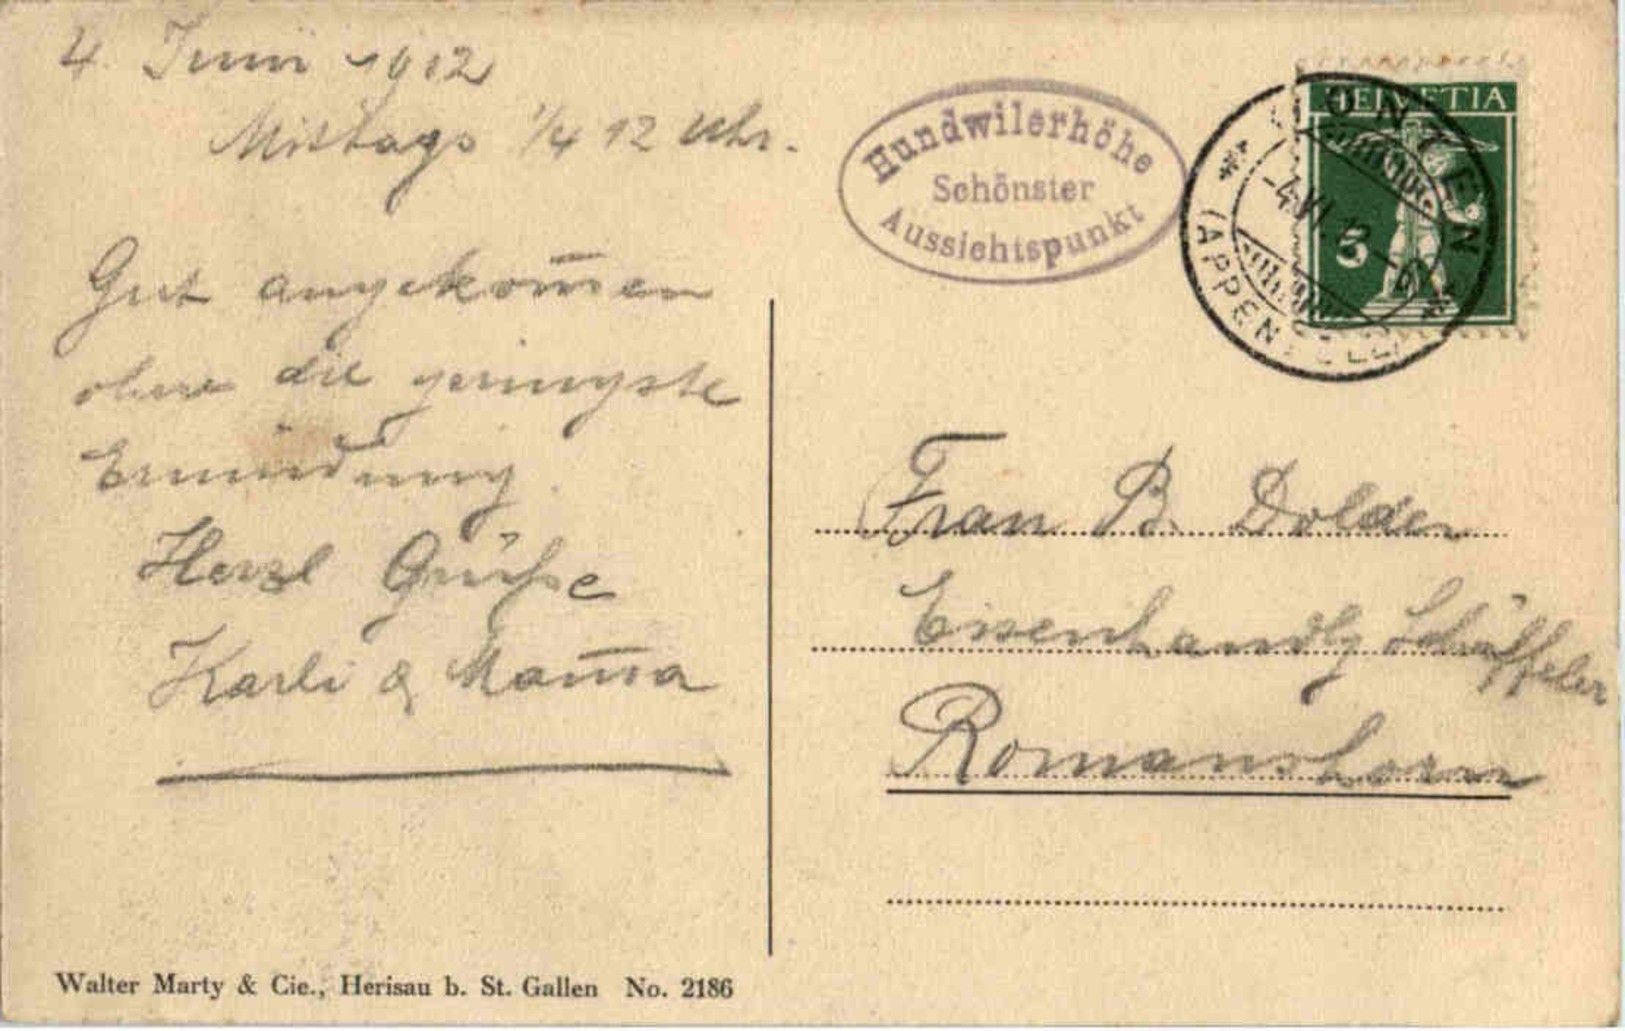 4. Juni 1912
Mittags 1/4 12 Uhr.
Gut angekom̅en
ohne die geringste
Ermüdung.
Herzl Grüße
Karli & Mam̅a
Hundwilerhöhe
Schönster
Aussichtspunkt
HELVETIA
5
GONTEN
-4.VI.12.-6
(APPENZELL)
Frau B. Dolder
Eisenhandlg Schäffeler
Romanshorn
Walter Marty & Cie., Herisau b. St. Gallen No. 2186